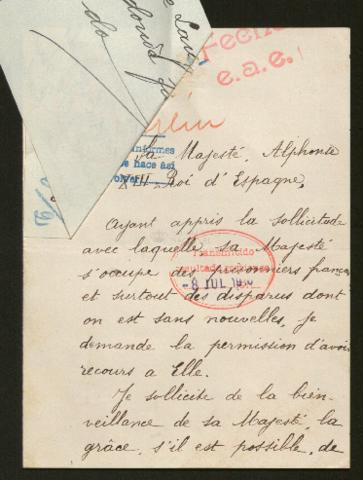 Fecha
e.a.e.
do
informes
hace así
Sa Majesté, Alphonse
XIII Roi d'Espagne,
Ayant appris la sollicitude
avec laquelle sa Majesté
s'occupe des prisonniers français
et surtout des disparus dont
on est sans nouvelles, je
demande la permission d'avoir
recours à Elle.
Transmitido
-8 JUL
Je sollicite de la bien-
veillance de sa Majesté, la
grâce, s'il est possible, de